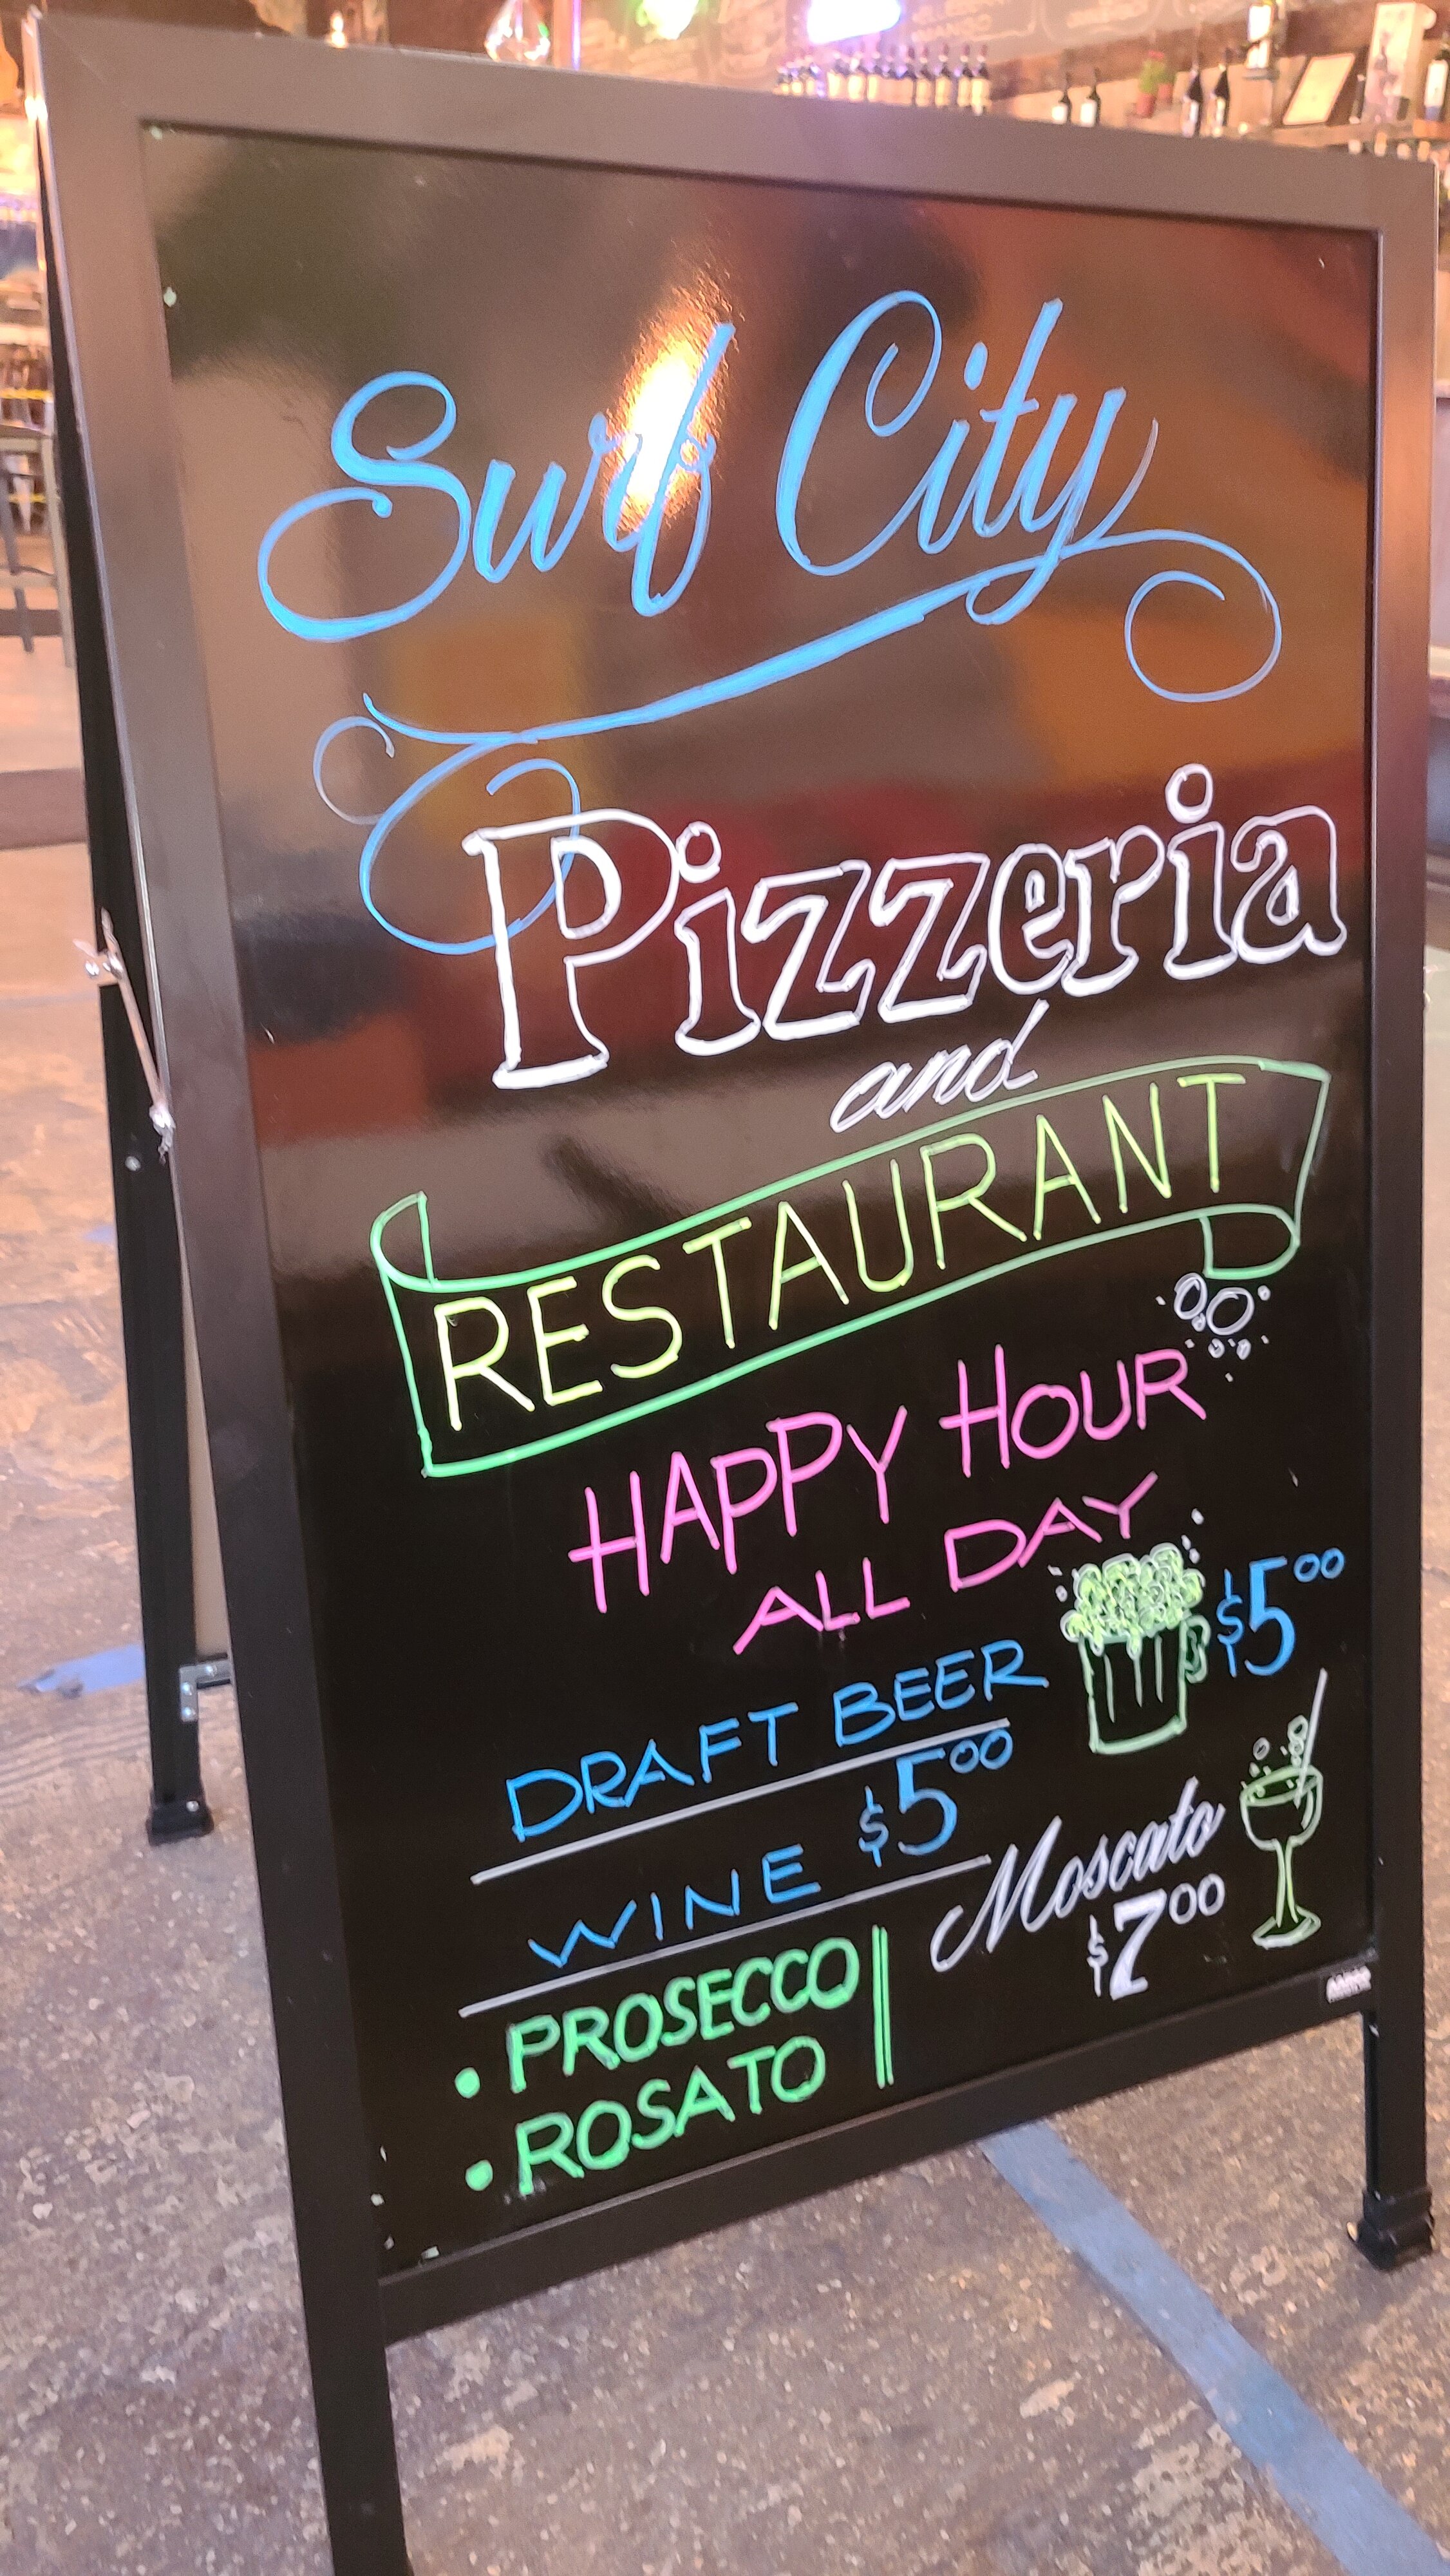 Surf City
Pizzeria
and
RESTAURANT
HAPPY HOUR
ALL DAY
DRAFT BEER $5.00
WINE $5.00
• PROSECCO
• ROSATO
Moscato
$7.00